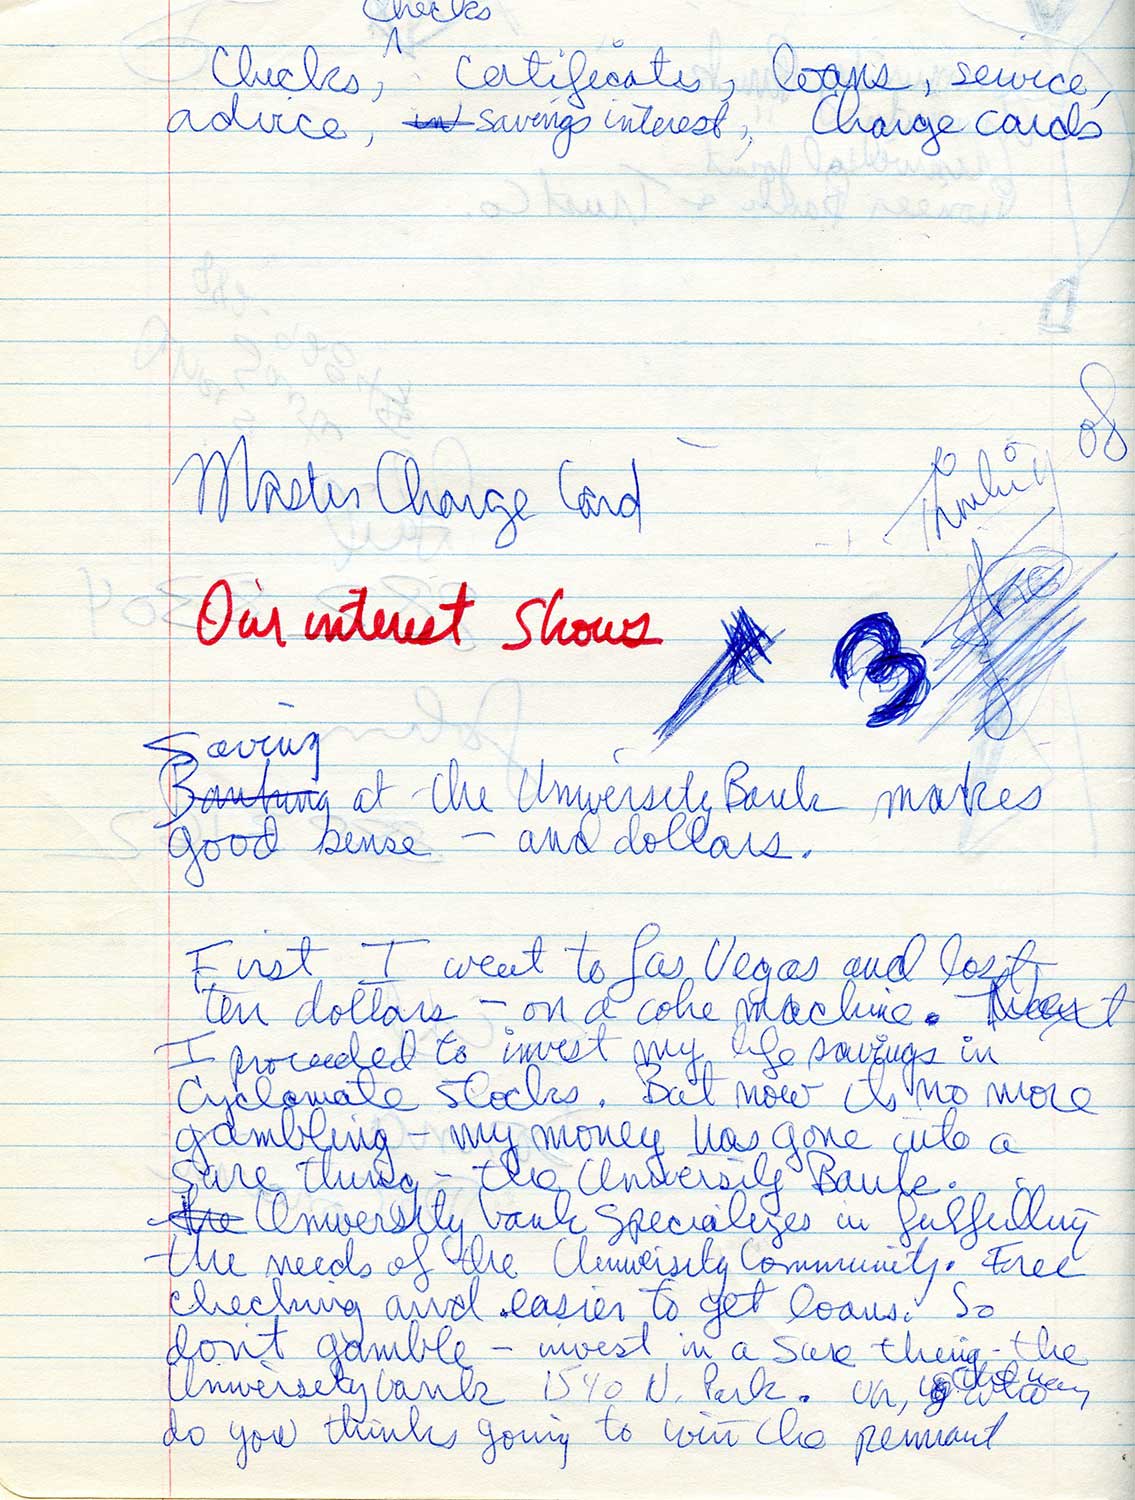 Checks
Checks, Certificates, loans, service,
advice, int savings interest, Charge cards
of
to
Thinking
Master Charge Card
Our interest Shows
3
Saving
Banking at the University Bank makes
good sense – and dollars.
First I went to Las Vegas and lost
ten dollars – on a coke machine. Next
I proceeded to invest my life savings in
Cyclomate Stocks. But now its no more
gambling – my money has gone into a
Sure thing – the University Bank.
the University bank specializes in fulfilling
the needs of the University Community. Free
checking and easier to get loans. So
don't gamble – invest in a sure thing – the
University bank 1540 N. Park. Oh, by the way who
do you thinks going to win the pennant